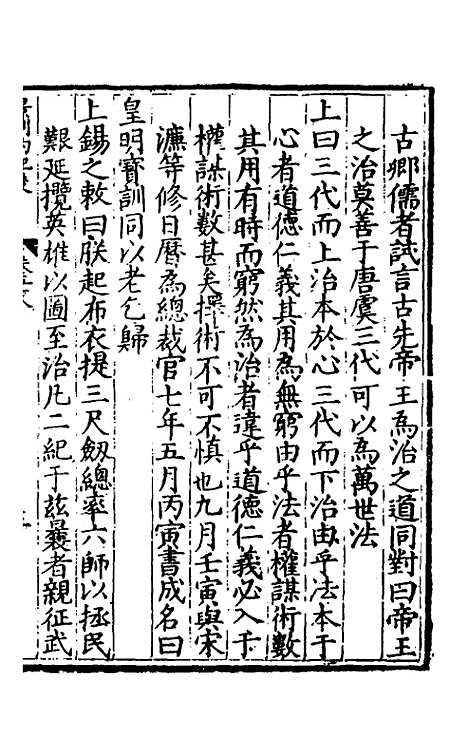 古卿儒者試言古先帝王為治之道同對曰帝王
之治莫善于唐虞三代可以為萬世法
上曰三代而上治本於心三代而下治由乎法本于
心者道德仁義其用為無窮由乎法者權謀術數
其用有時而窮然為治者違乎道德仁義必入于
權謀術數甚矣擇術不可不慎也九月壬寅與宋
濂等修日曆為總裁官七年五月丙寅書成名曰
皇明寳訓同以老乞歸
上錫之敕曰朕起布衣提三尺劔總率六師以拯民
艱延攬英雄以圖至治凡二紀于兹曩者親征武